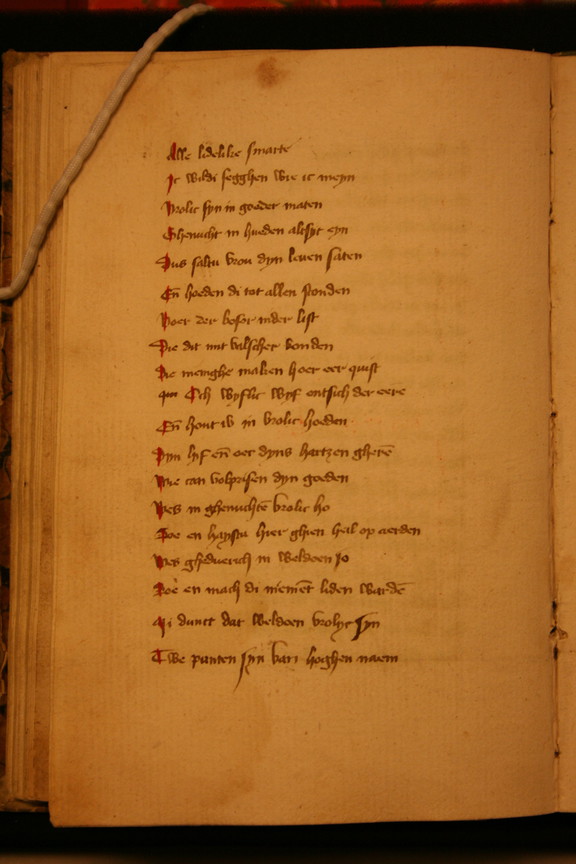 Alle lidelike smarte
Ic wildi segghen wie ic meyn
Vrolic syn in goeder maten
Ghenucht in hueden altyt eyn
Dus saltu vrou dyn leuen saten
En̄ hoeden di tot allen stonden
Voer der
Die dit mit valscher konden
Die menighe maken hoer eer quijt
Och wyflic wyf ontsich der eere
En̄ hout w in vrolic hoeden
Dyn lyf en̄ oec dyns hartzen gherē
Wie can volprisen dyn goeden
Wes in ghenuchtē vrolic ho
Soe en hapstu hier ghien heil op aerden
Wes gheduerich in weldoen jo
Soe en mach di niemēt liden wardē
Mi dunct dat weldoen vrolyc syn
Twe punten syn van hoeghen naem